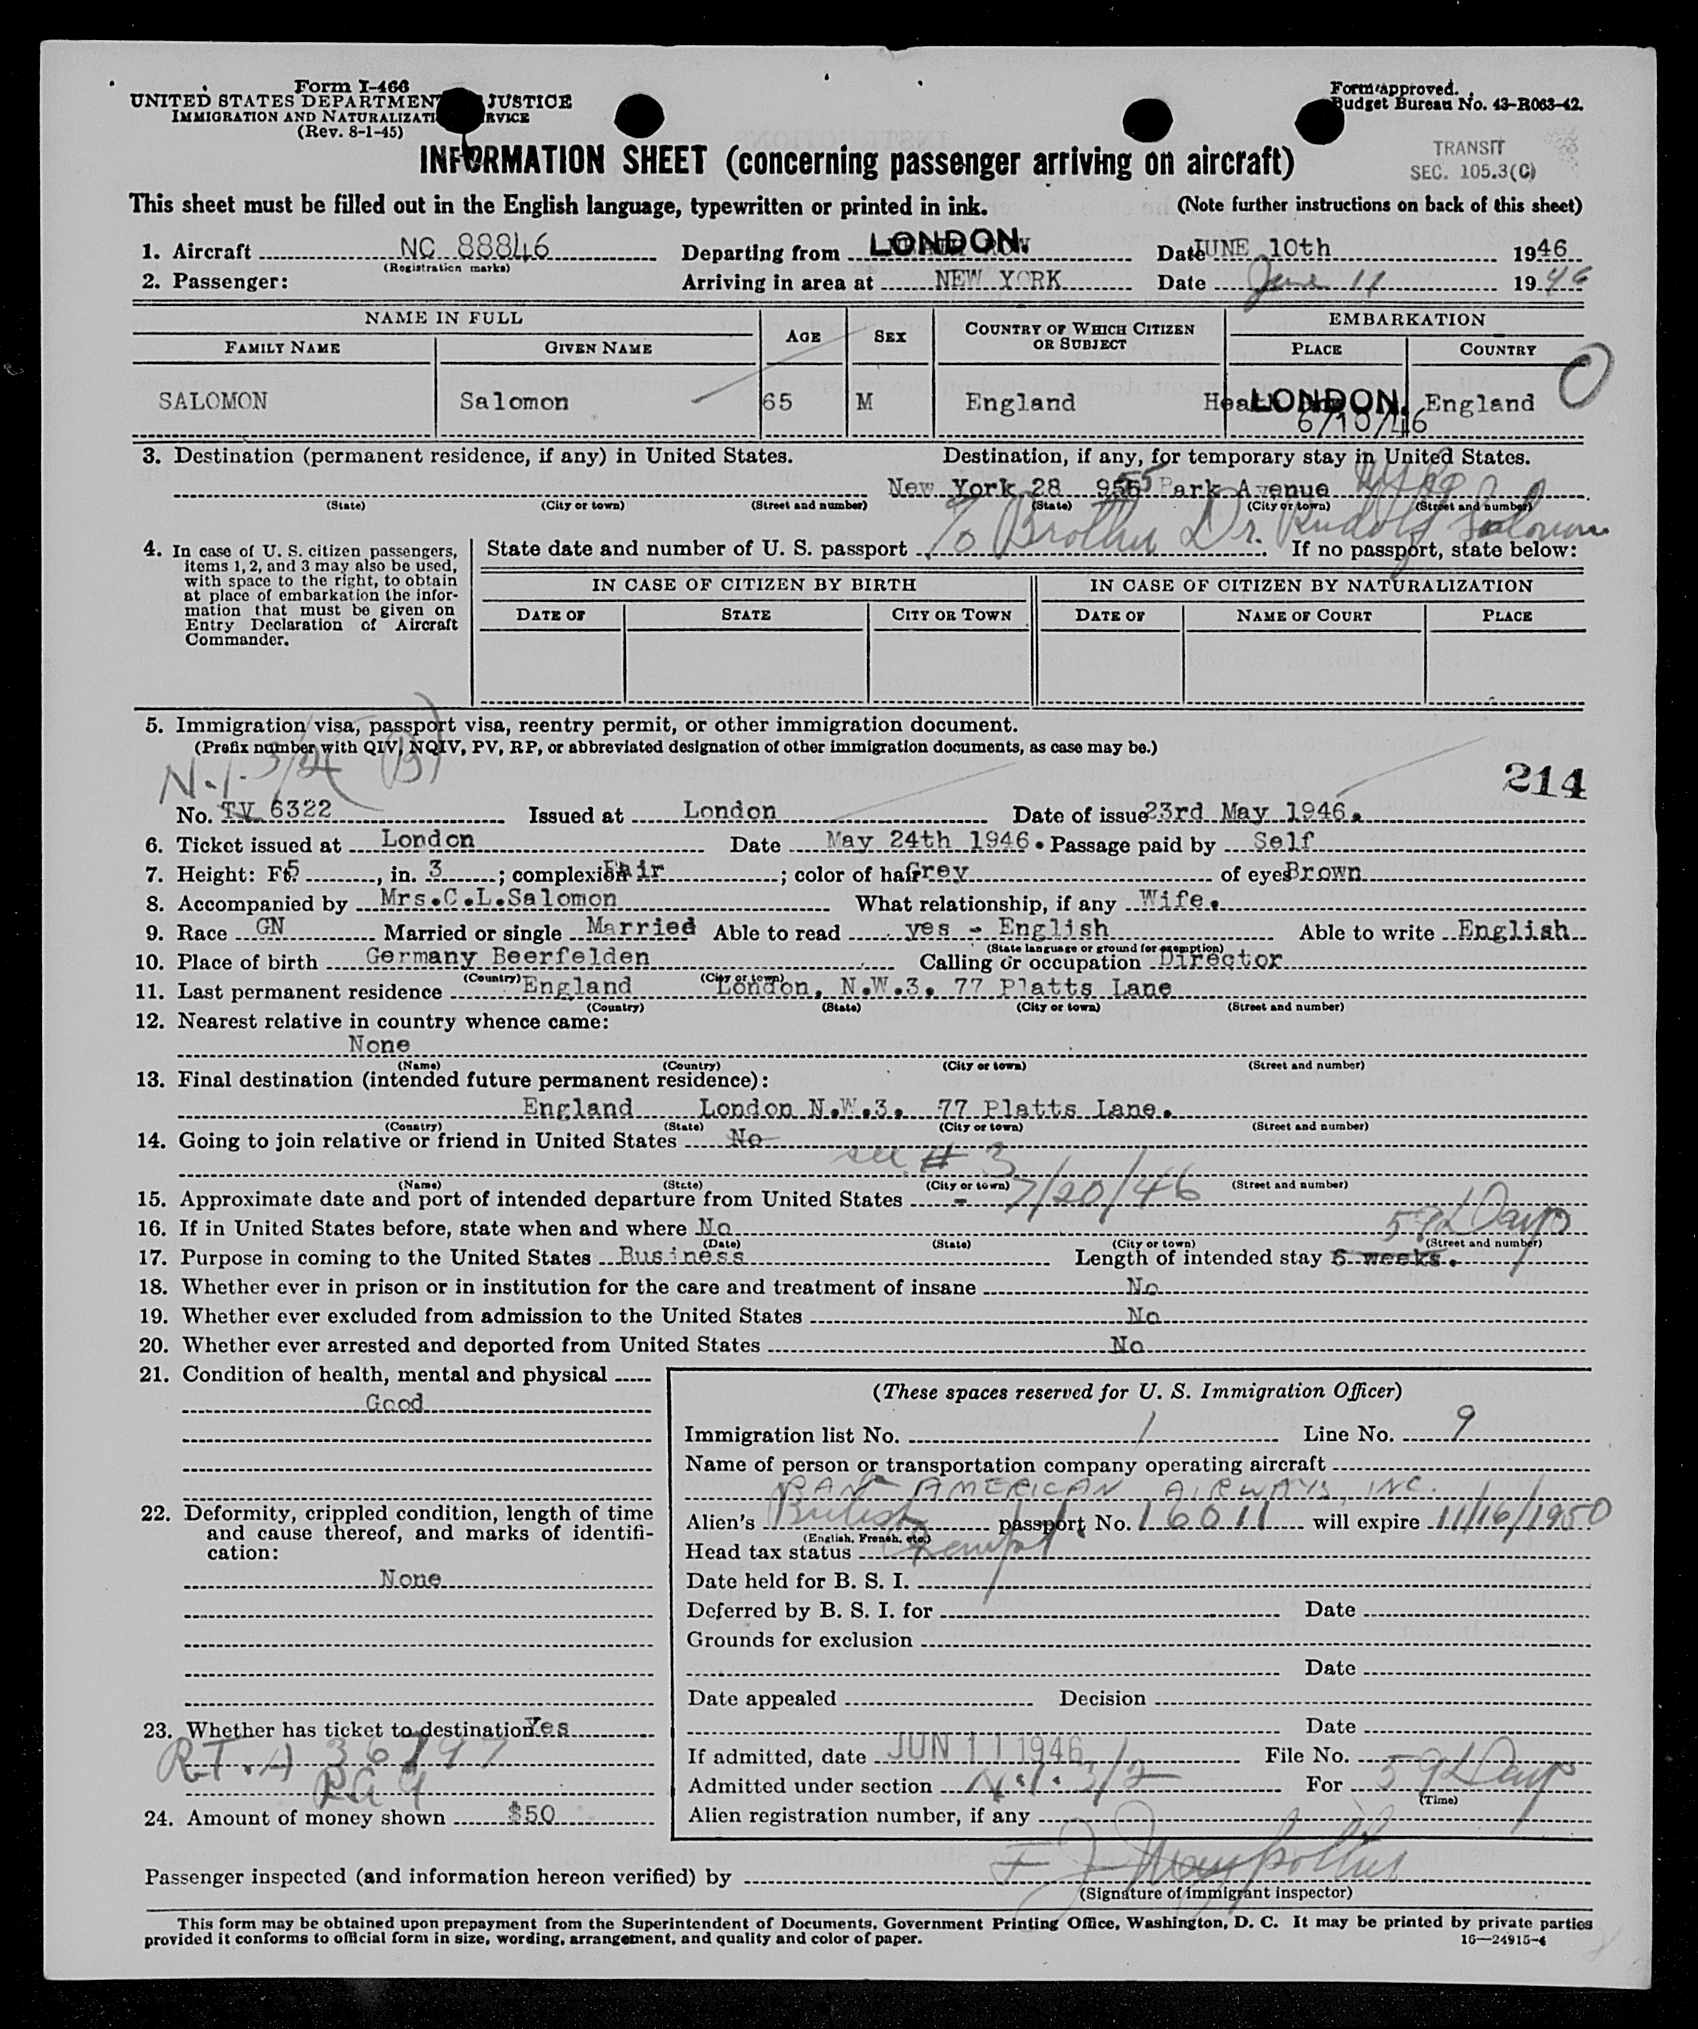 Form I-466
UNITED STATES DEPARTMENT JUSTICE
IMMIGRATION AND NATURALIZATI RVICE
(Rev. 8-1-45)
Form approved.
Budget Bureau No. 43-R063-42.
TRANSIT
SEC. 105.3(C)
INFORMATION SHEET (concerning passenger arriving on aircraft)
This sheet must be filled out in the English language, typewritten or printed in ink. (Note further instructions on back of this sheet)
1. Aircraft NC 88846 Departing from LONDON. Date JUNE 10th 1946
(Registration marks)
2. Passenger: Arriving in area at NEW YORK Date June 11 1946
NAME IN FULL AGE SEX COUNTRY OF WHICH CITIZEN OR SUBJECT EMBARKATION
FAMILY NAME GIVEN NAME PLACE COUNTRY
SALOMON Salomon 65 M England LONDON. England
6/10/46
3. Destination (permanent residence, if any) in United States. Destination, if any, for temporary stay in United States.
New York 28 955 Park Avenue
(State) (City or town) (Street and number) (State) (City or town) (Street and number)
c/o Brother Dr. Rudolf Salomon
4. In case of U. S. citizen passengers, items 1, 2, and 3 may also be used, with space to the right, to obtain at place of embarkation the information that must be given on Entry Declaration of Aircraft Commander.
State date and number of U. S. passport If no passport, state below:
IN CASE OF CITIZEN BY BIRTH IN CASE OF CITIZEN BY NATURALIZATION
DATE OF STATE CITY OR TOWN DATE OF NAME OF COURT PLACE
5. Immigration visa, passport visa, reentry permit, or other immigration document.
(Prefix number with QIV, NQIV, PV, RP, or abbreviated designation of other immigration documents, as case may be.)
214
No. TV 6322 Issued at London Date of issue 23rd May 1946.
6. Ticket issued at London Date May 24th 1946. Passage paid by Self
7. Height: Ft. 5, in. 3; complexion Fair; color of hair Grey of eyes Brown
8. Accompanied by Mrs.C.L.Salomon What relationship, if any Wife.
9. Race GN Married or single Married Able to read yes - English Able to write English
(State language or ground for exemption)
10. Place of birth Germany Beerfelden Calling or occupation Director
(Country) (City or town)
11. Last permanent residence England London, N.W.3. 77 Platts Lane
(Country) (State) (City or town) (Street and number)
12. Nearest relative in country whence came:
None
(Name) (Country) (City or town) (Street and number)
13. Final destination (intended future permanent residence):
England London N.W.3. 77 Platts Lane.
(Country) (State) (City or town) (Street and number)
14. Going to join relative or friend in United States No
see # 3
(Name) (State) (City or town) (Street and number)
15. Approximate date and port of intended departure from United States - 7/20/46
16. If in United States before, state when and where No
(Date) (State) (City or town) (Street and number)
59 Days
17. Purpose in coming to the United States Business Length of intended stay 6 weeks.
18. Whether ever in prison or in institution for the care and treatment of insane No
19. Whether ever excluded from admission to the United States No
20. Whether ever arrested and deported from United States No
21. Condition of health, mental and physical
Good
22. Deformity, crippled condition, length of time and cause thereof, and marks of identification:
None
23. Whether has ticket to destination Yes
24. Amount of money shown $50
(These spaces reserved for U. S. Immigration Officer)
Immigration list No. 1 Line No. 9
Name of person or transportation company operating aircraft
PAN AMERICAN AIRWAYS, INC.
Alien's British passport No. 16011 will expire 11/16/1950
(English, French, etc.)
Head tax status Exempt
Date held for B. S. I.
Deferred by B. S. I. for Date
Grounds for exclusion
Date
Date appealed Decision
Date
If admitted, date JUN 11 1946 File No.
Admitted under section N.I. 3/2 For 59 Days
(Time)
Alien registration number, if any
Passenger inspected (and information hereon verified) by
(Signature of immigrant inspector)
This form may be obtained upon prepayment from the Superintendent of Documents, Government Printing Office, Washington, D. C. It may be printed by private parties
provided it conforms to official form in size, wording, arrangement, and quality and color of paper. 16—24915-4